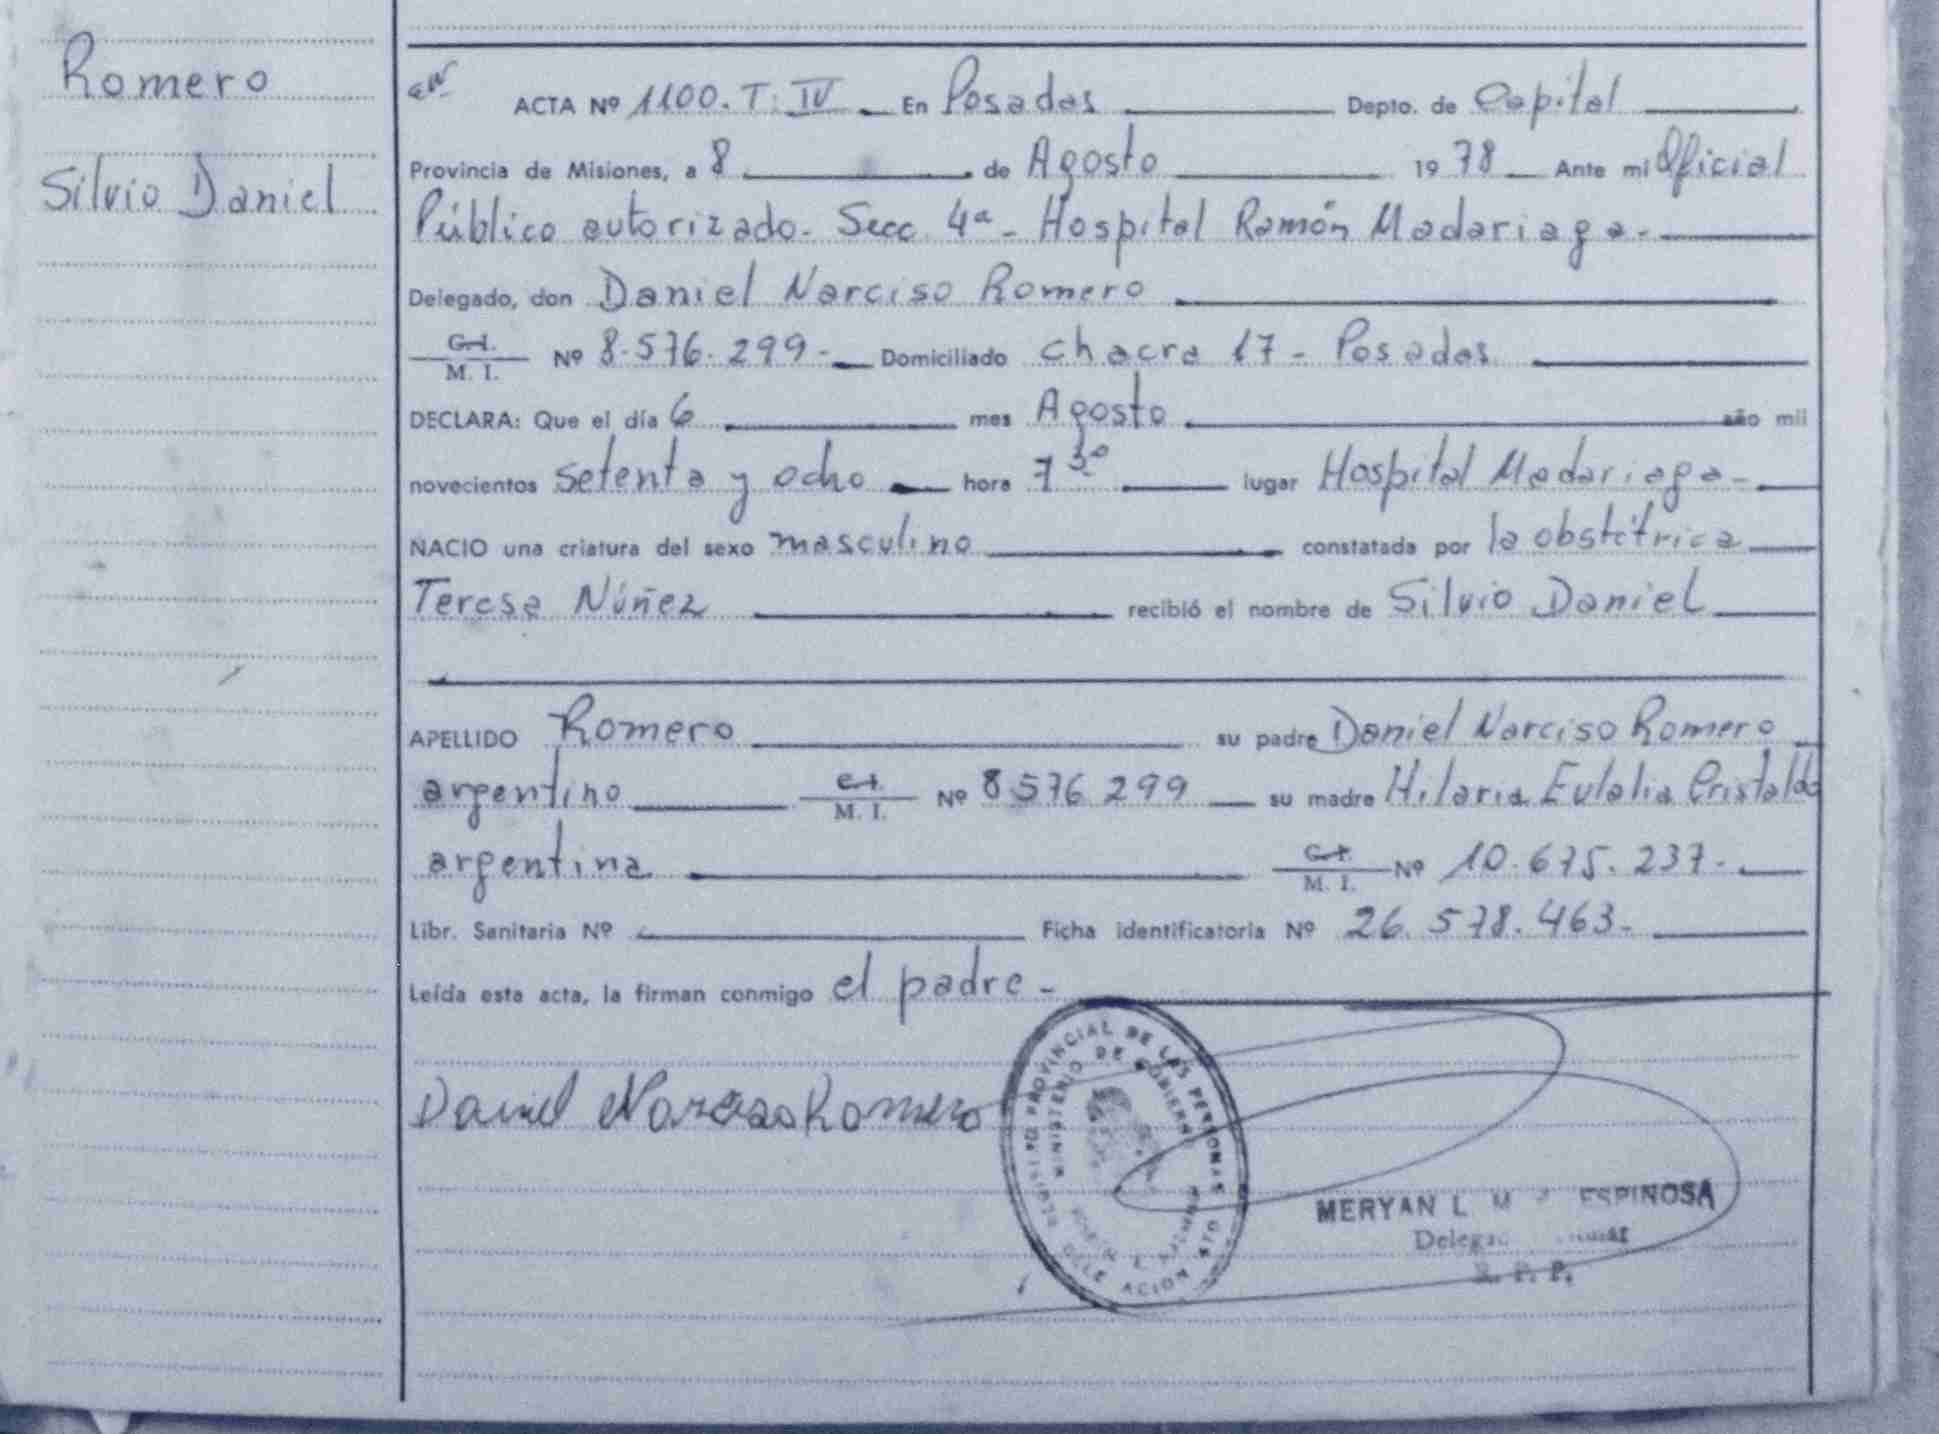 Romero
Silvio Daniel
ACTA Nº 1100. T: IV En Posadas Depto. de Capital
Provincia de Misiones, a 8 de Agosto 1978 Ante mi Oficial
Público autorizado. Secc. 4ª - Hospital Ramón Madariaga -
Delegado, don Daniel Narciso Romero
C. I.
M. I. Nº 8.576.299 - Domiciliado chacra 17 - Posadas
DECLARA: Que el día 6 mes Agosto año mil
novecientos setenta y ocho hora 7 30 lugar Hospital Madariaga -
NACIO una criatura del sexo masculino constatada por la obstétrica
Teresa Núñez recibió el nombre de Silvio Daniel
APELLIDO Romero su padre Daniel Narciso Romero
argentino C. I. M. I. Nº 8576299 su madre Hilaria Eulalia Cristaldo
argentina C. I. M. I. Nº 10.675.237 -
Libr. Sanitaria Nº Ficha identificatoria Nº 26.578.463 -
Leída esta acta, la firman conmigo el padre -
Daniel Narciso Romero
PROVINCIAL DE LAS PERSONAS
MINISTERIO DE GOBIERNO
MERYAN L ESPINOSA
R. P. P.